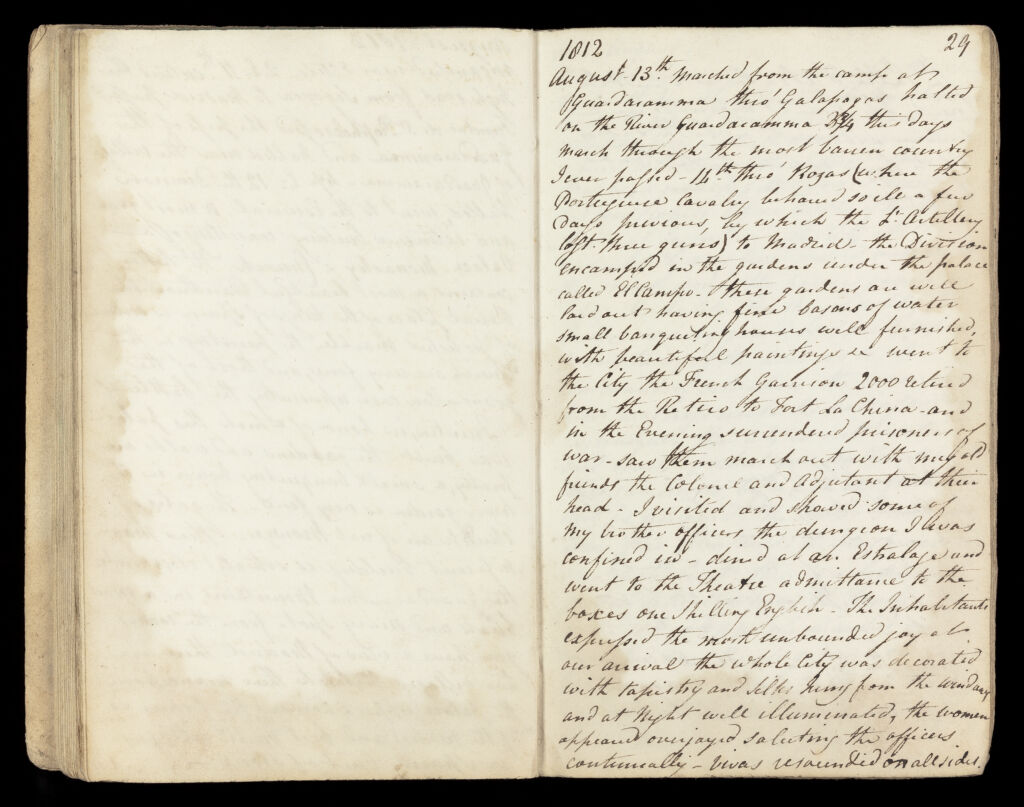 1812
29
August 13th Marched from the camp at
Guardaramma thro' Galapagas halted
on the River Guardaramma this days
march through the most barren country
I ever passed - 14th thro' Rozas (where the
Portuguese Cavalry behaved so ill a few
days previous, by which the Lt Artillery
lost three guns) to Madrid the Division
encamped in the gardens under the palace
called El Campo - these gardens are well
laid out having fine basons of water
small banqueting houses well furnished,
with beautiful paintings &c went to
the City the French Garrison 2000 retired
from the Retiro to Fort La China - and
in the Evening surrendered prisoners of
war - saw them march out with my old
friends the Colonel and Adjutant at their
head - I visited and shewed some of
my brother officers the dungeon I was
confined in - dined at an Estalage and
went to the Theatre admittance to the
boxes one Shilling English - The Inhabitants
expressed the most unbounded joy at
our arrival the whole City was decorated
with tapistry and silks hung from the windows
and at Night well illuminated, the women
appeared overjoyed saluting the officers
continually - vivas resounded on all sides.